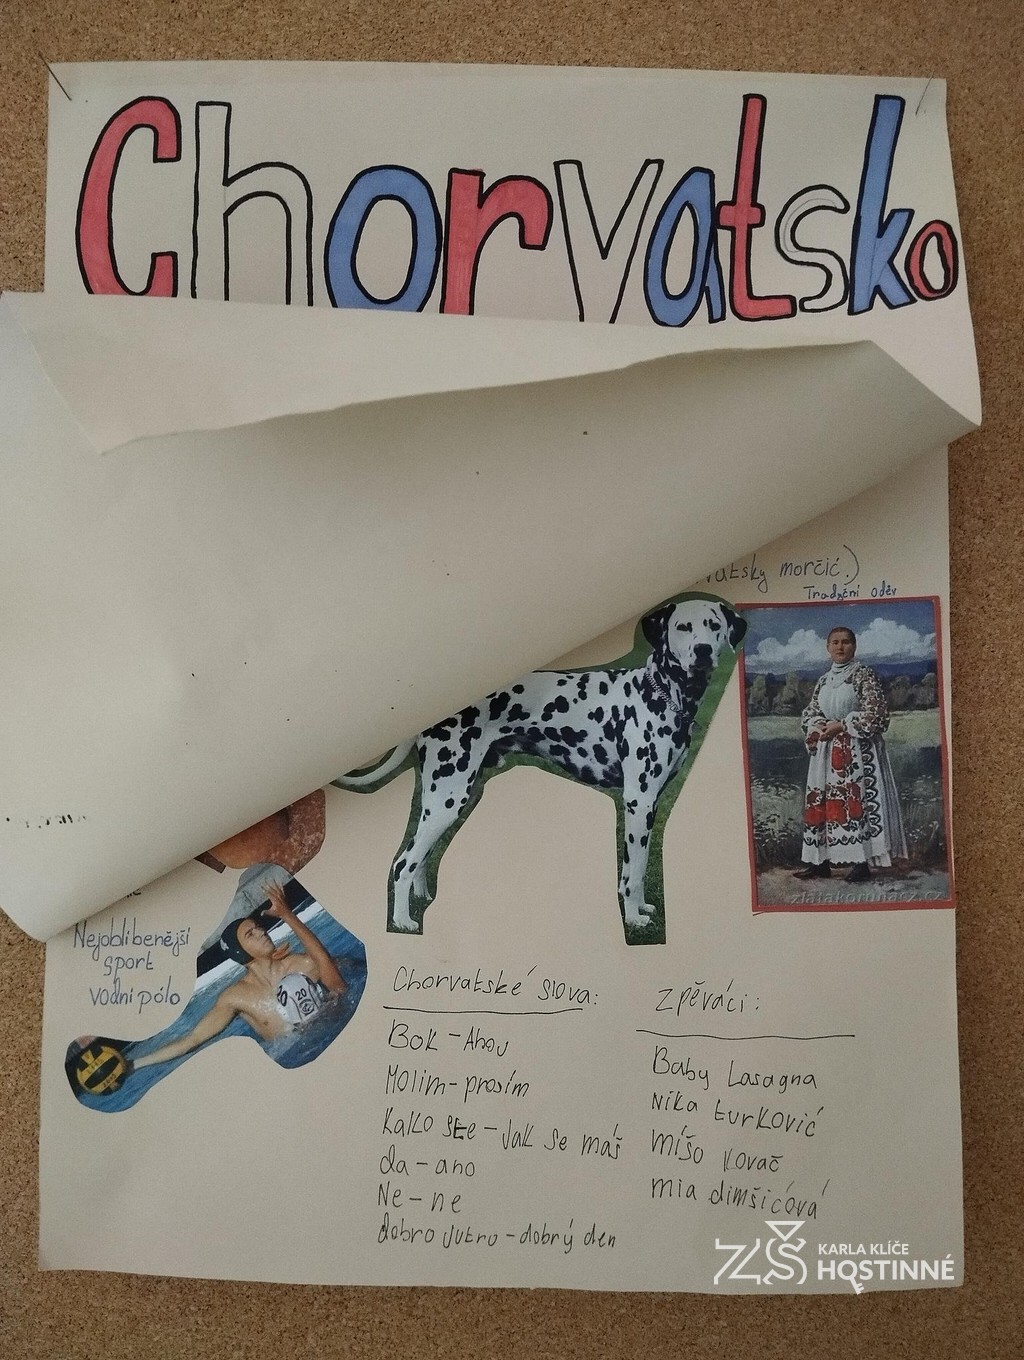 Chorvatsko
morčić.)
Tradiční oděv
zlatakoruna.cz
Nejoblibenější
sport
vodní pólo
Chorvatské slova:
Bok - Ahoj
Molim - prosím
Kako ste - Jak se máš
da - ano
Ne - ne
dobro jutro - dobrý den
Zpěváci:
Baby Lasagna
Nika turković
míšo kovač
mia dimšićová
20
ZŠ KARLA KLÍČE
HOSTINNÉ